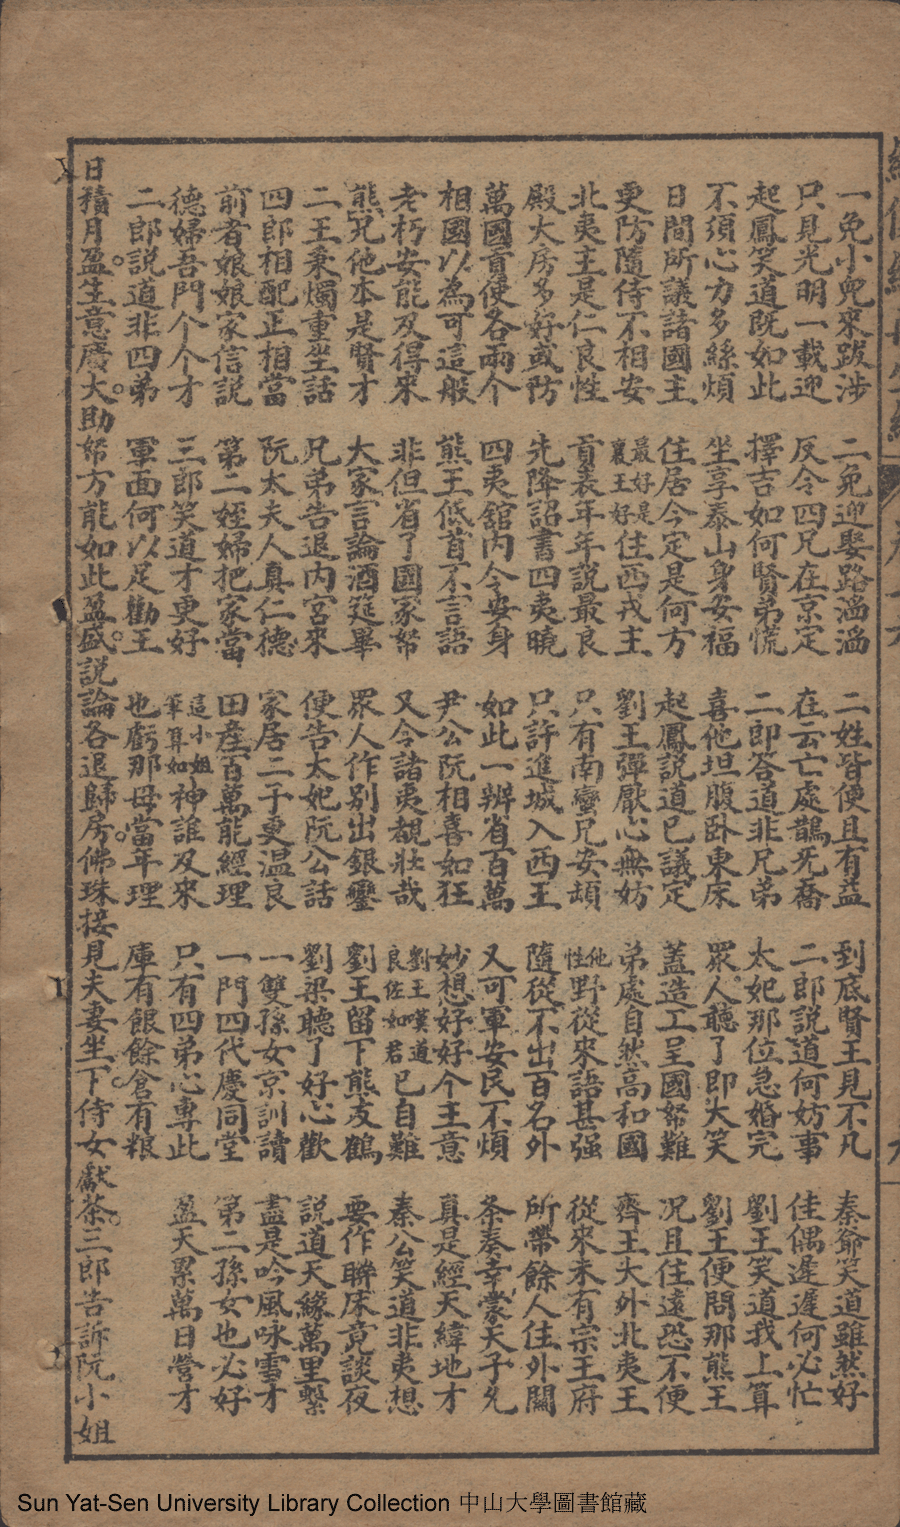 一免小兜來跋涉 二免迎娶路滔滔 二姓皆便且有益 到底賢王見不凡 秦爺笑道雖然好
只見光明一載迎 反令四兄在京定 在云亡處鵲旡喬 二郎説道何妨事 佳偶遲遲何必忙
起鳳笑道既如此 擇吉如何賢弟慌 二郎答道非兄弟 太妃那位急婚完 劉王笑道我上算
不須心力多絲煩 坐享泰山身安福 喜他坦腹卧東床 眾人聽了即大笑 劉王便問那熊王
日間所議諸國主 住居今定是何方 起鳳説道已議定 蓋造工呈國帑難 况且住遠恐不便
更防隨侍不相安 最好是襄王好住西戎主 劉王彈厭心無妨 弟處自然高和國 齊王大外北夷王
北夷主是仁良性 貢表年年説最良 只有南蠻兄安頡 他性野從來語甚强 從來未有宗王府
殿大房多好或防 先降詔書四夷曉 只許進城入西王 隨從不出百名外 所帶餘人住外關
萬國貢使各兩个 四夷舘内今安身 如此一辨省百萬 又可軍安民不煩 条奏幸蒙天子允
相國以為可這般 熊王低首不言語 尹公阮相喜如狂 妙想好好个王意 真是經天緯地才
老朽安能及得來 非但省了國家帑 又令諸夷覩壯哉 劉王嘆道良佐如君已自難 秦公笑道非夷想
熊兄他本是賢才 大家言論酒筵畢 眾人作别出銀鑾 劉王留下熊友鶴 要作聨床竟談夜
二王秉燭重坐話 兄弟告退内宫來 便告太妃阮公話 劉梁聽了好心歡 説道天緣萬里繫
四郎相配正相當 阮太夫人真仁德 家居二子更温良 一雙孫女京訓讀 盡是吟風咏雪才
前者娘娘家信説 第二姪婦把家當 田産百萬能經理 一門四代慶同堂 第二孫女也必好
德婦吾門个个才 三郎笑道才更好 這小姐筆算如神誰及來 只有四弟心専此 盈天累萬日營才
二郎説道非四弟 軍面何以足勸王 也虧那母當年理 庫有銀餘倉有粮
日積月盈。生意廣大。助帑方能如此盈盛。説論各退歸房。佛珠接見夫妻坐下。侍女獻茶。三郎告訴阮小姐
Sun Yat-Sen University Library Collection 中山大學圖書館藏